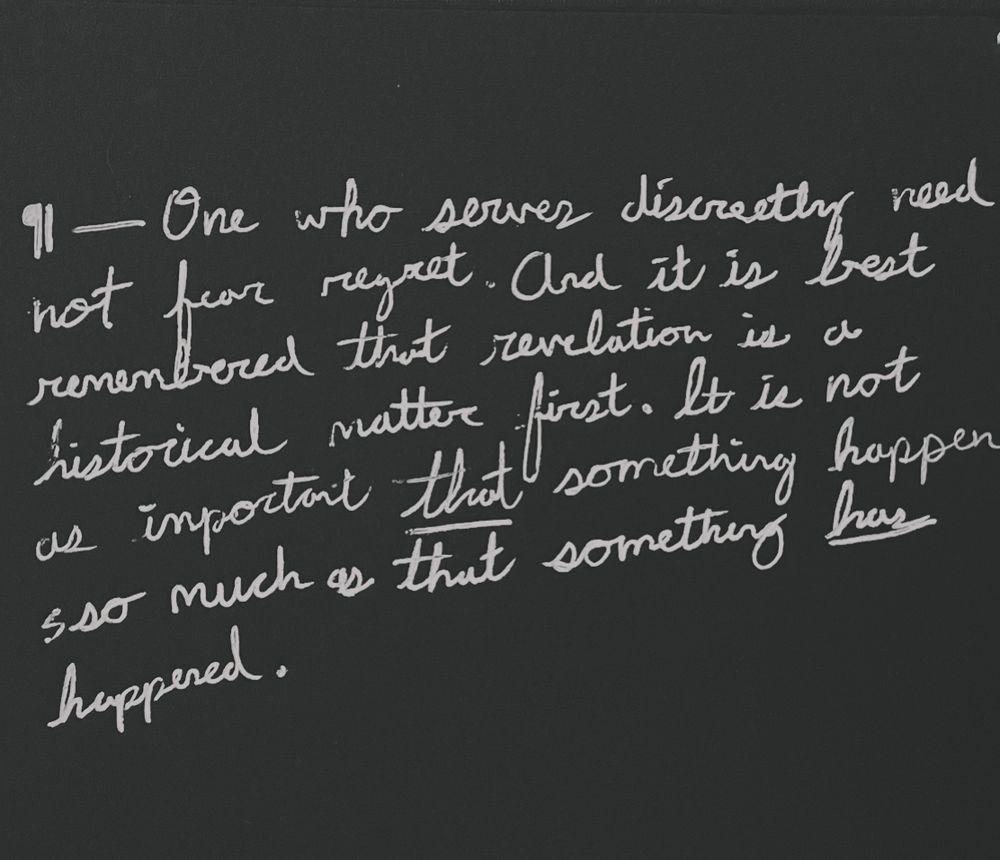 ¶ — One who serves discreetly need
not fear regret. And it is best
remembered that revelation is a
historical matter first. It is not
as important that something happen
so much as that something has
happened.